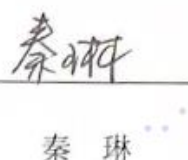 秦琳
秦 琳